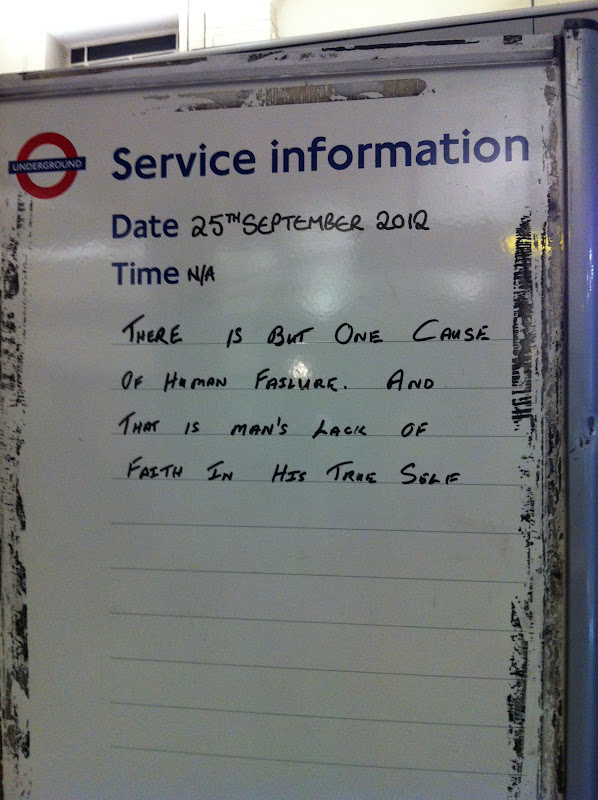 UNDERGROUND
Service information
Date 25TH SEPTEMBER 2012
Time N/A
THERE IS BUT ONE CAUSE
OF HUMAN FAILURE. AND
THAT IS MAN'S LACK OF
FAITH IN HIS TRUE SELF